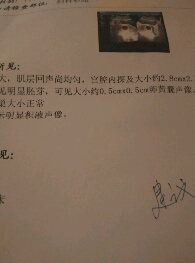 所见:
大，肌层回声尚均匀，宫腔内探及大小约2.8cm×2.
见明显胚芽，可见大小约0.5cm×0.5cm卵黄囊声像。
大小正常
明显积液声像。
见: